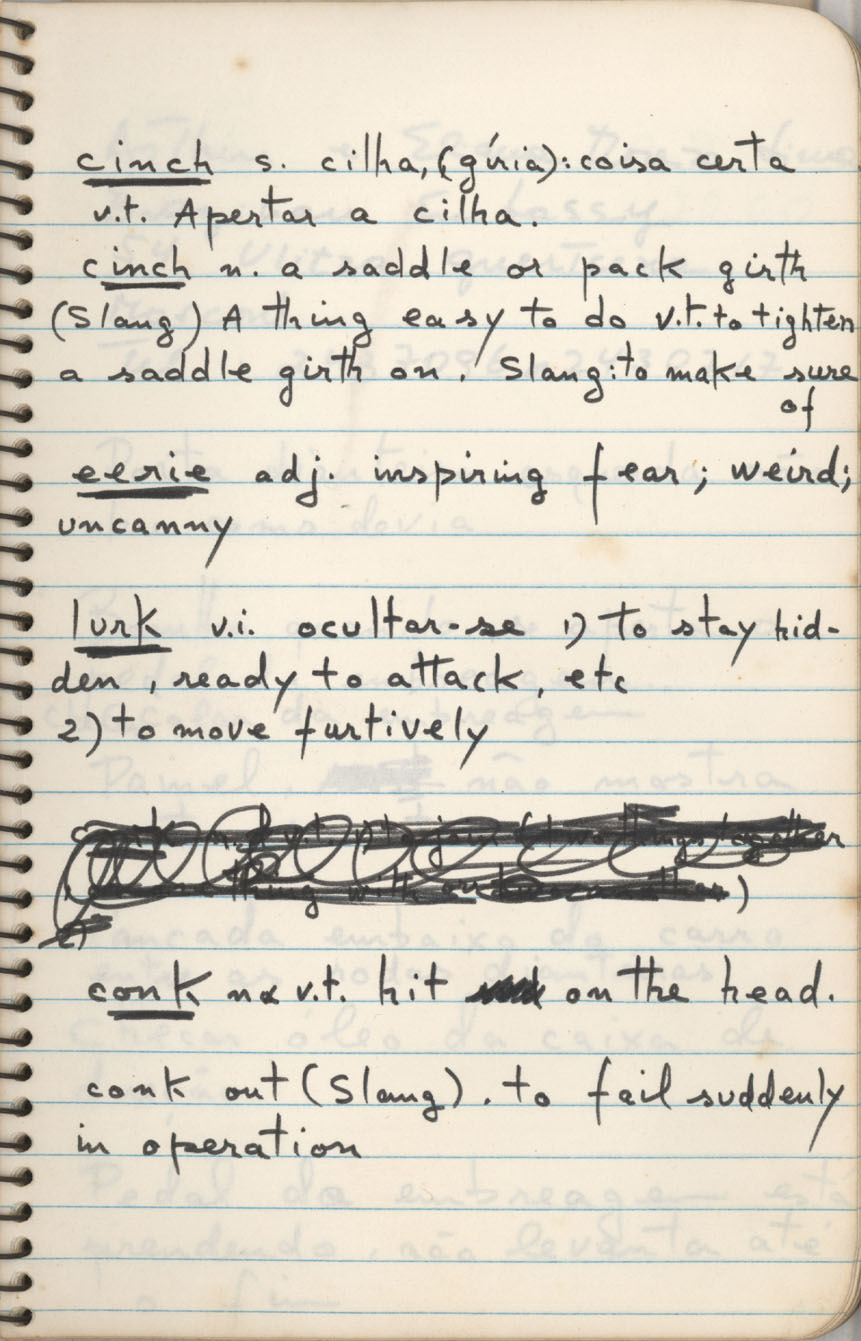 cinch s. cilha, (gíria): coisa certa
v.t. Apertar a cilha.
cinch n. a saddle or pack girth
(Slang) A thing easy to do v.t. to tighten
a saddle girth on. Slang: to make sure
of
eerie adj. inspiring fear; weird;
uncanny
lurk v.i. ocultar-se 1) to stay hid-
den, ready to attack, etc
2) to move furtively
conk n & v.t. hit on the head.
conk out (Slang). to fail suddenly
in operation